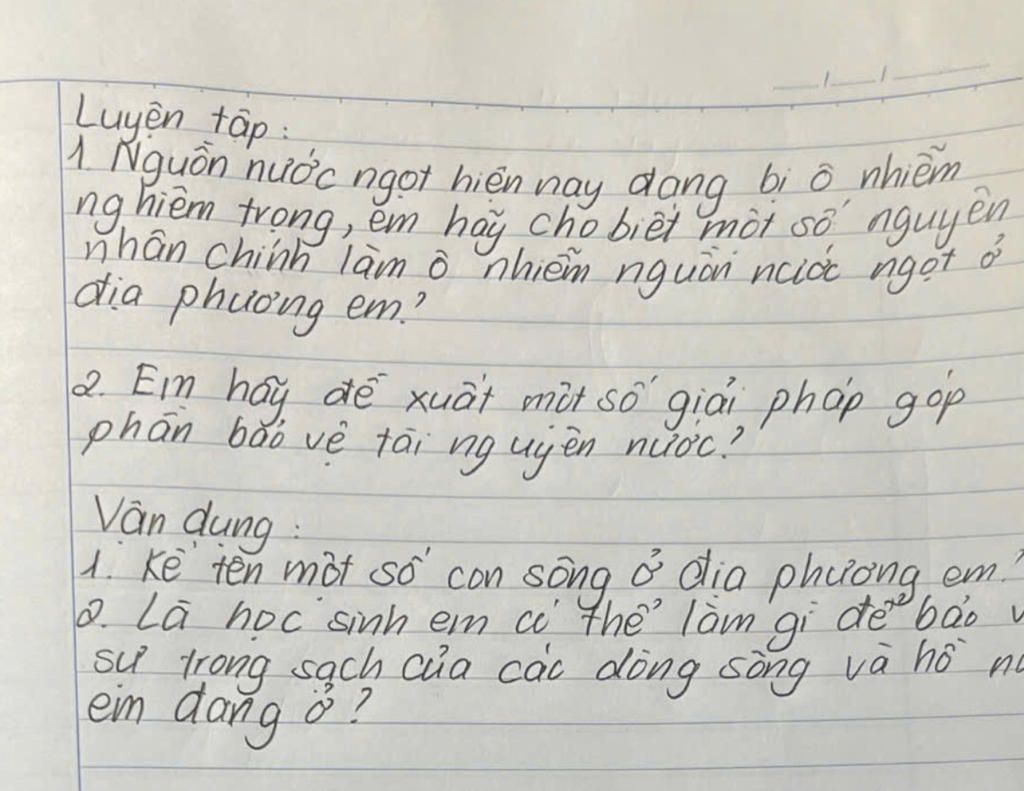 Luyện tập:
1. Nguồn nước ngọt hiện nay đang bị ô nhiễm
nghiêm trọng, em hãy cho biết một số nguyên
nhân chính làm ô nhiễm nguồn nước ngọt ở
địa phương em?
2. Em hãy đề xuất một số giải pháp góp
phần bảo vệ tài nguyên nước?
Vận dụng:
1. Kể tên một số con sông ở địa phương em?
2. Là học sinh em có thể làm gì để bảo
sự trong sạch của các dòng sông và hồ
em đang ở?